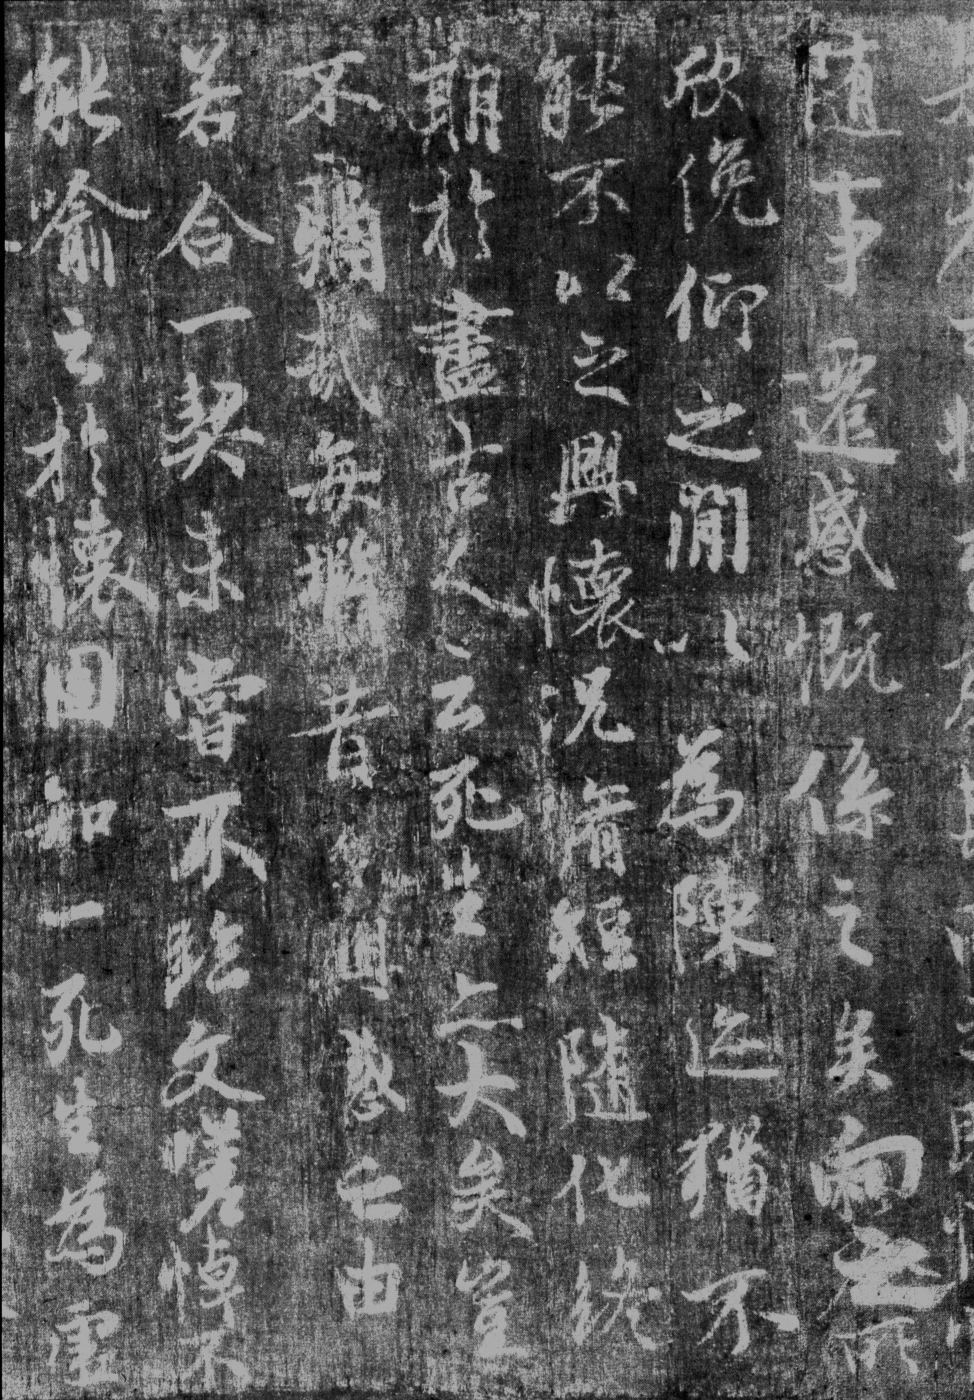 隨事遷感慨係之矣向之所
欣俛仰之閒以為陳迹猶不
能不以之興懷況脩短隨化終
期於盡古人云死生亦大矣豈
不痛哉每攬昔人興感之由
若合一契未嘗不臨文嗟悼不
能喻之於懷固知一死生為虛